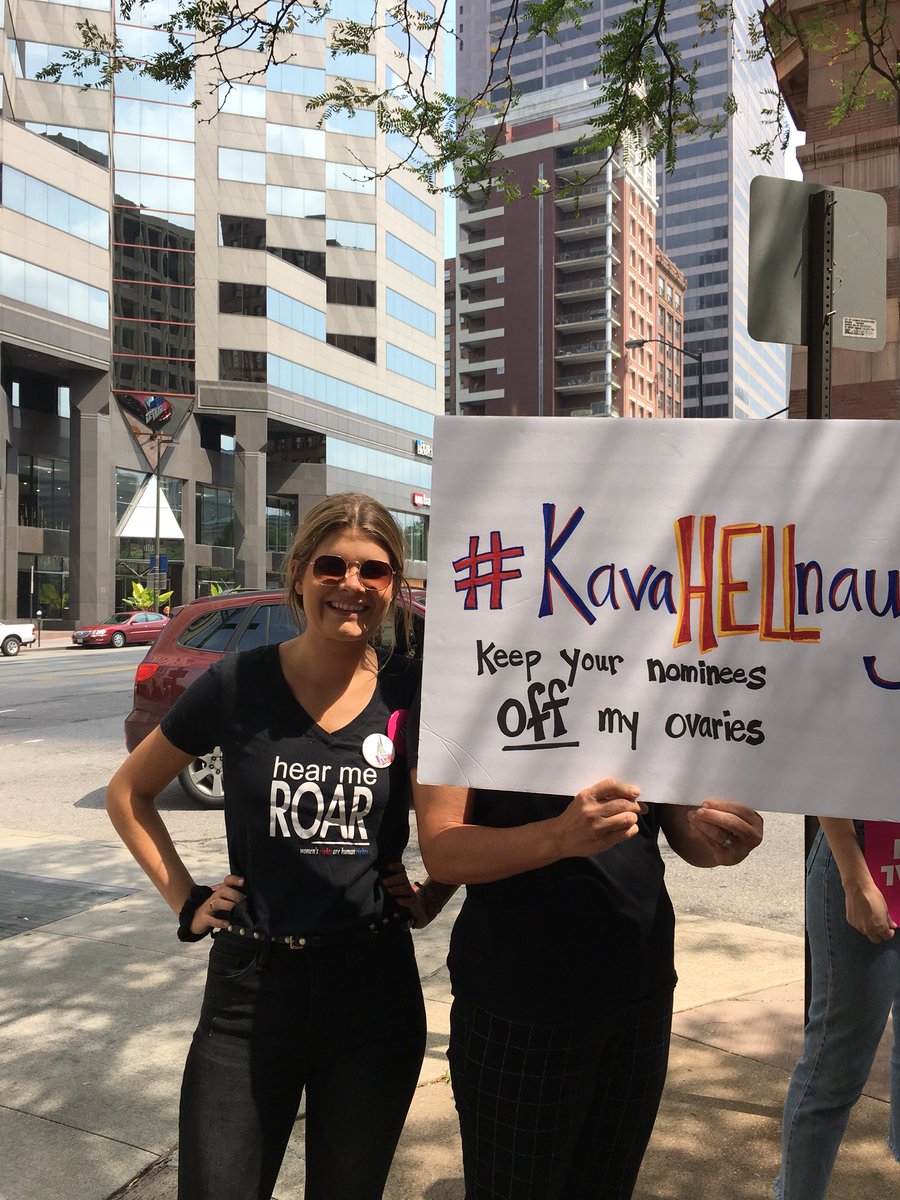 #KavaHELLnay
Keep your nominees
off my ovaries
hear me
ROAR
women's rights are human rights